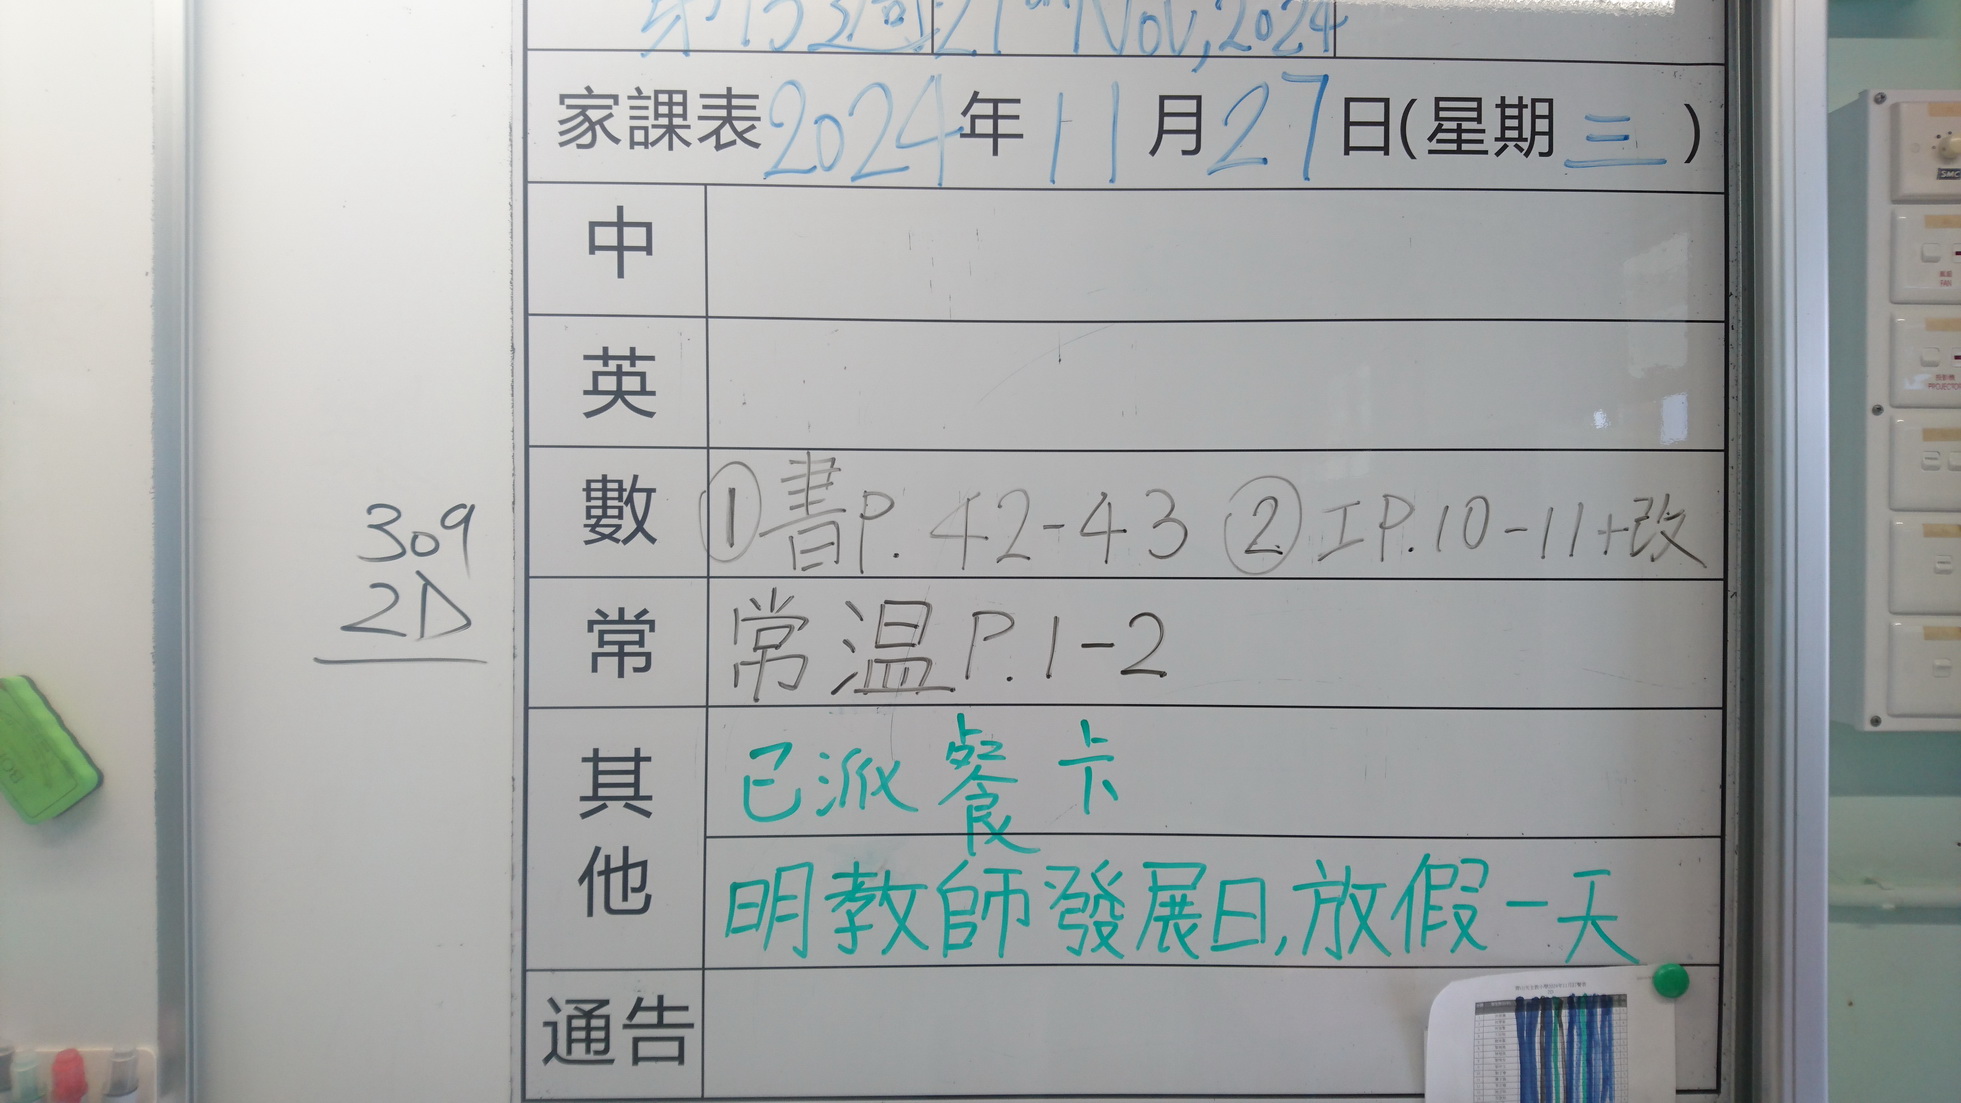 第13週 27th Nov, 2024
家課表2024年11月27日(星期三)
中
英
數 ①書P.42-43 ②工P.10-11+改
309
2D
常 常温P.1-2
其他 已派餐卡
明教師發展日,放假一天
通告
SMC
PROJECTOR